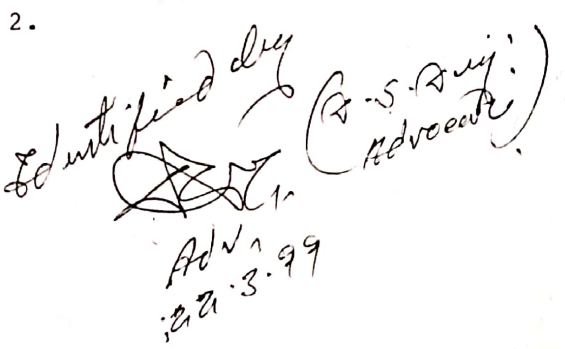 2.
Identified by
Advocate
Adv.
22.3.99